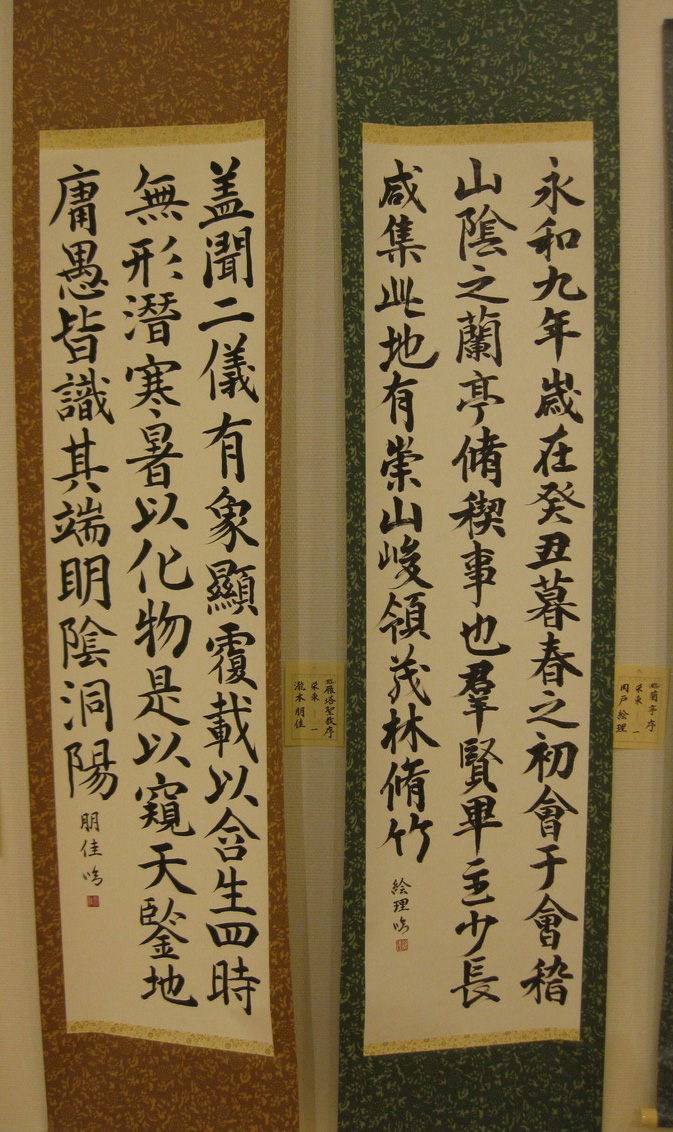 永和九年歳在癸丑暮春之初會于會稽
山陰之蘭亭脩稧事也羣賢畢至少長
咸集此地有崇山峻領茂林脩竹
絵理
蘭亭序
栄東 一
岡戸絵理
盖聞二儀有象顯覆載以含生四時
無形潛寒暑以化物是以窺天鑒地
庸愚皆識其端明陰洞陽
朋佳
雁塔聖教序
栄東 一
瀧本朋佳